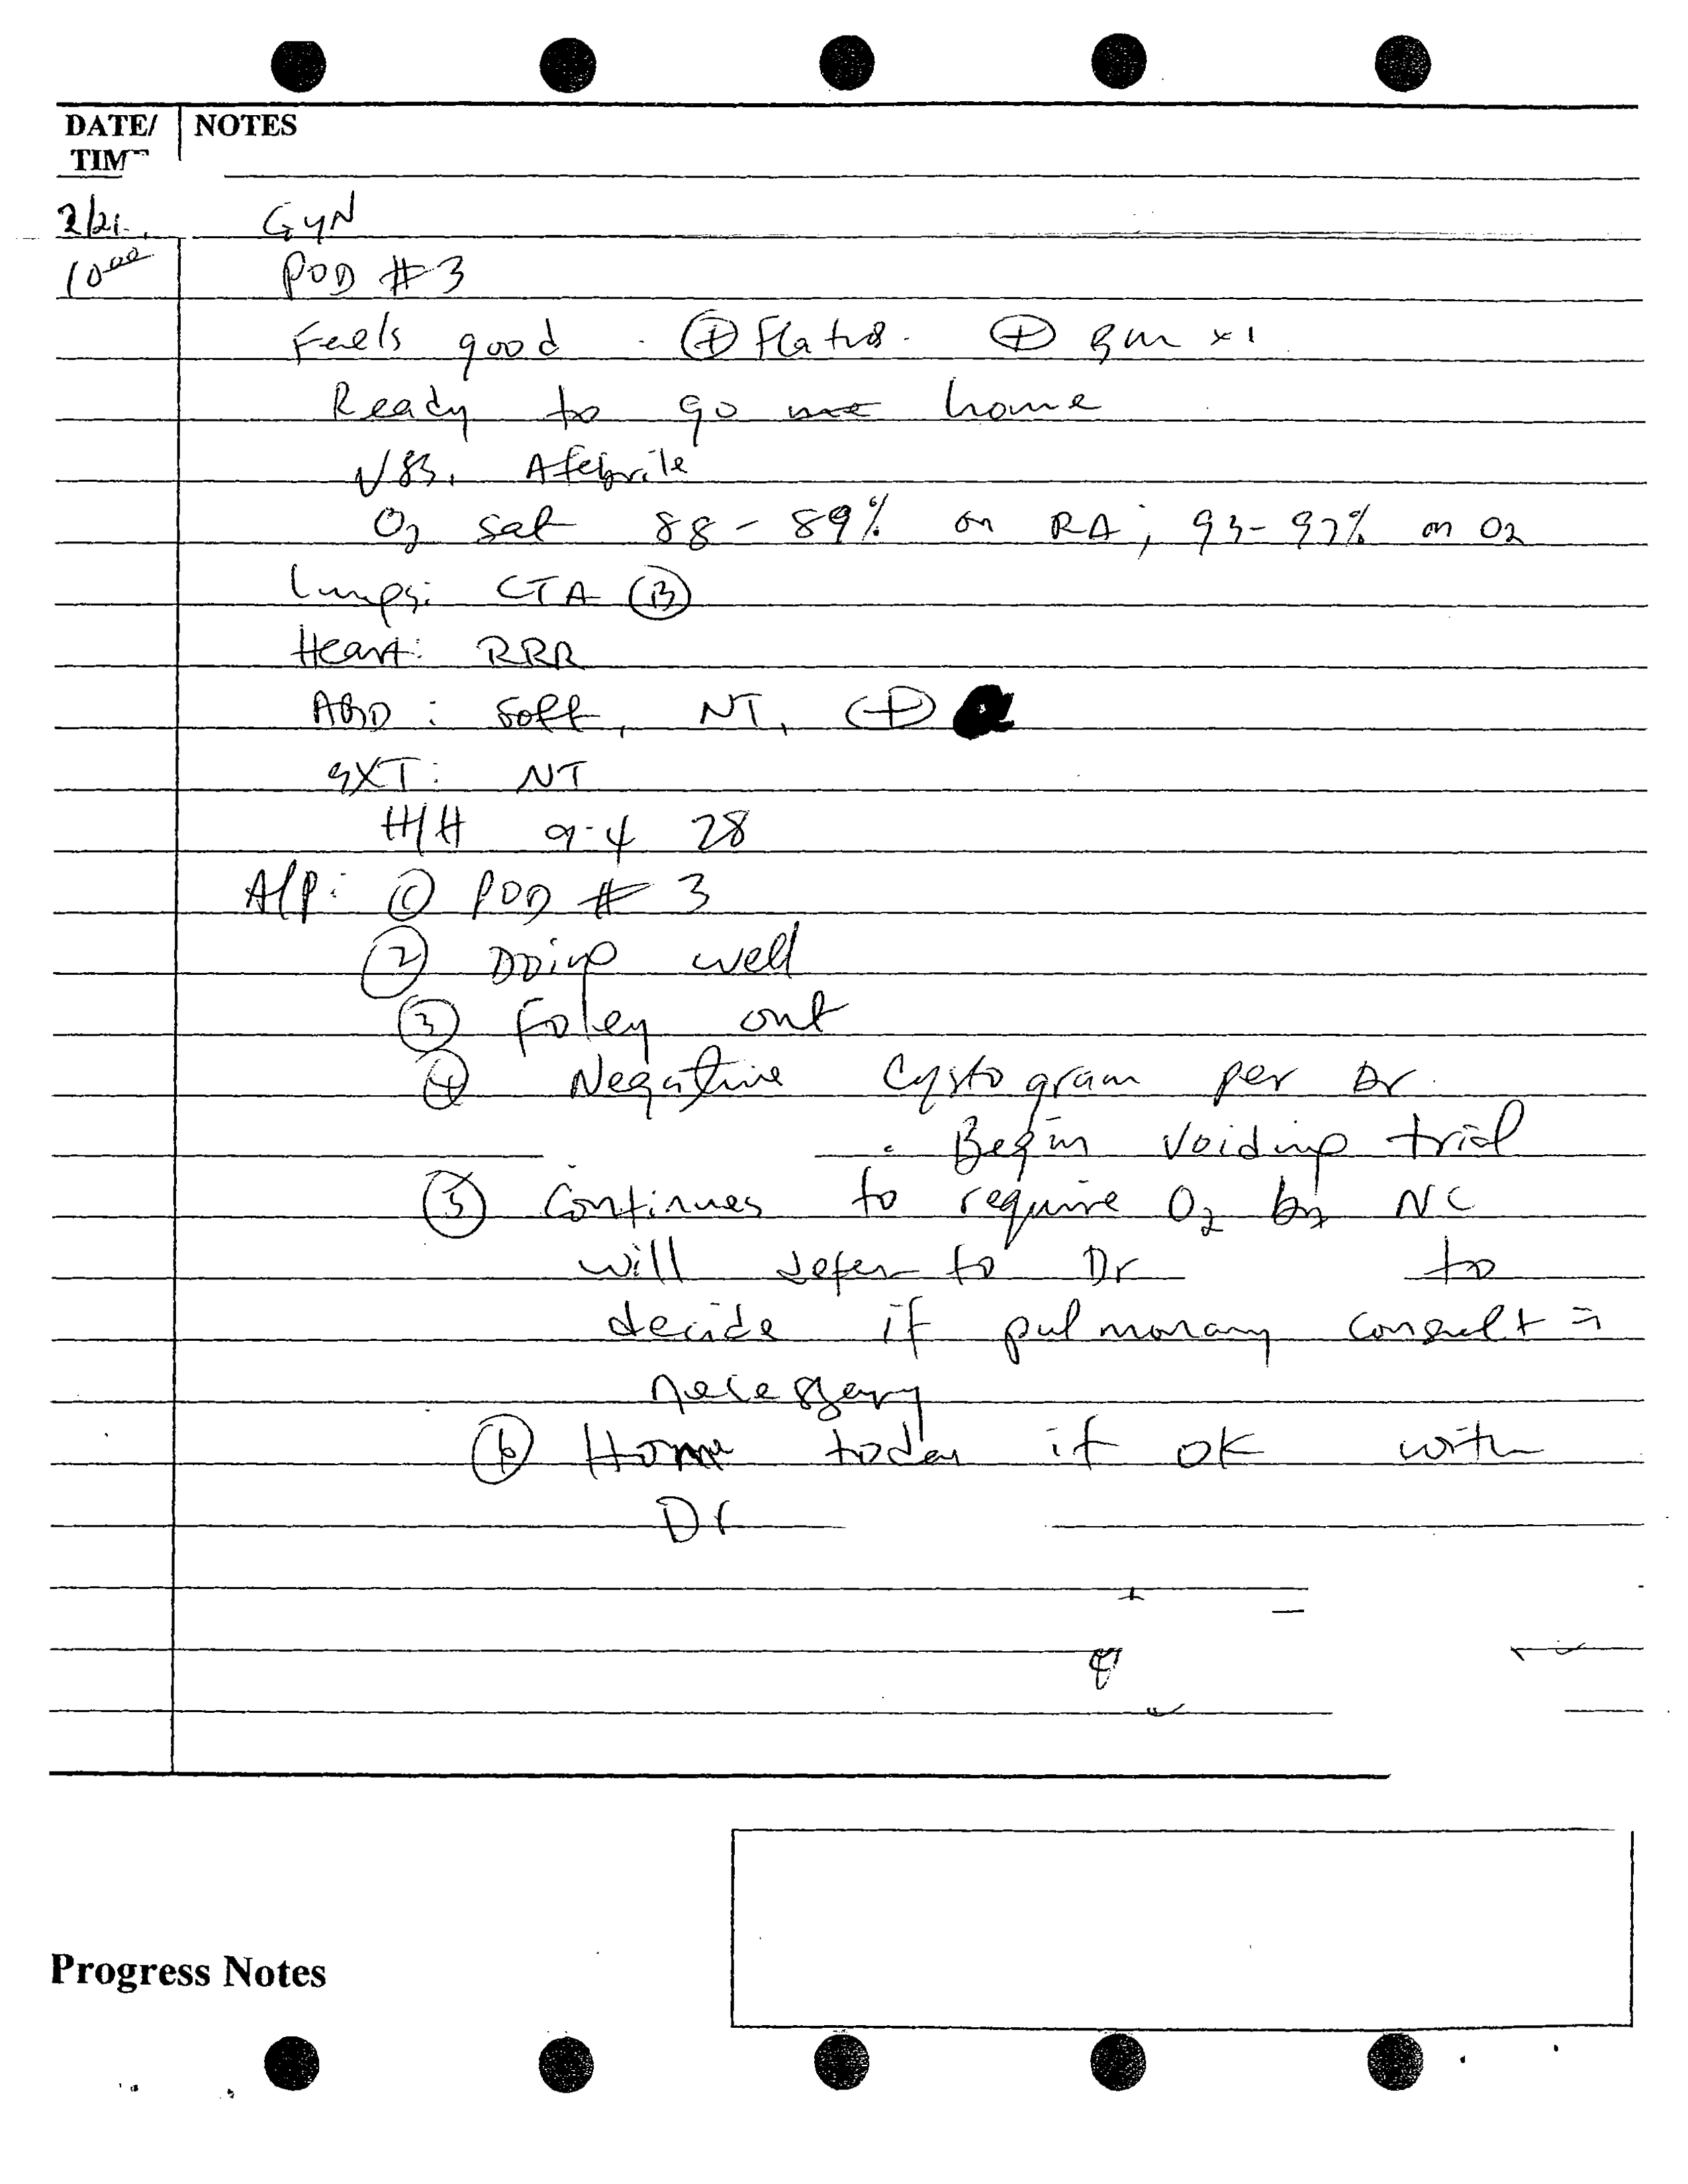 DATE/ NOTES
TIME
2/21
GYN
10⁰⁰ POD #3
Feels good. ⊕ flatus. ⊕ BM x1
Ready to go home
VSS, Afebrile
O2 sat 88-89% on RA; 93-97% on O2
Lungs: CTA Ⓑ
Heart: RRR
ABD: soft, NT, ⊕
EXT: NT
H/H 9.4 28
A/P: ① POD #3
② Doing well
③ Foley out
④ Negative Cystogram per Dr.
. Begin voiding trial
⑤ Continues to require O2 by NC
will defer to Dr to
decide if pulmonary consult is
necessary
⑥ Home today if OK with
Dr
Progress Notes